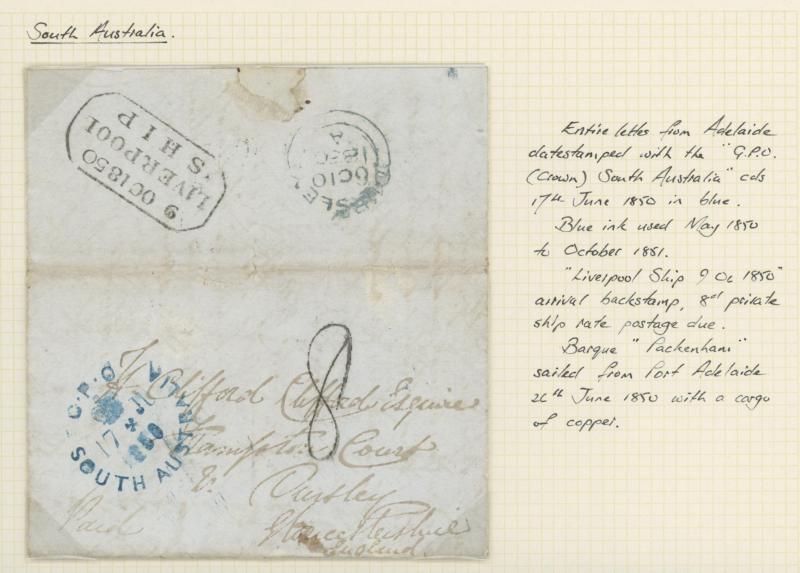 South Australia.
9 OC 1850
LIVERPOOL
SHIP
OC 10
1850
A
G.P.O
17 * JU
1850
SOUTH AUSTRALIA
8
H. Clifford Clifford Esquire
Frampton Court
Dursley
Gloucestershire
England.
Paid
Entire letter from Adelaide
datestamped with the "G.P.O.
(Crown) South Australia" cds
17th June 1850 in blue.
Blue ink used May 1850
to October 1851.
"Liverpool Ship 9 Oc 1850"
arrival backstamp, 8d private
ship rate postage due.
Barque "Packenham"
sailed from Port Adelaide
26th June 1850 with a cargo
of copper.